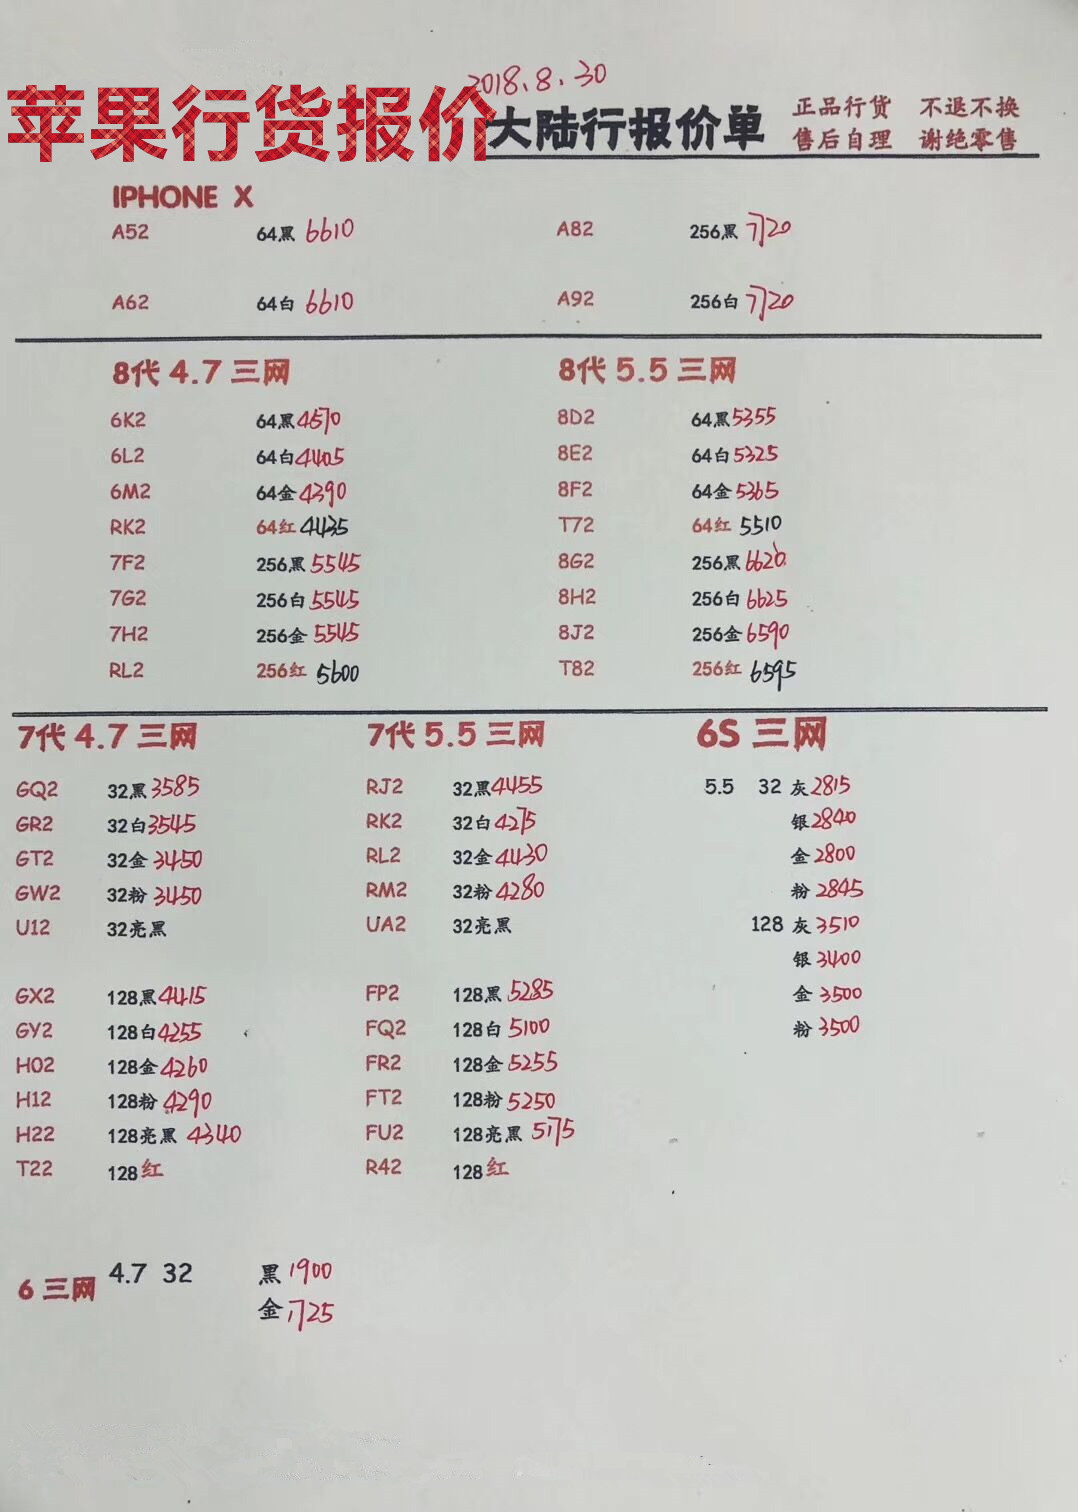 2018.8.30
苹果行货报价
大陆行报价单
正品行货 不退不换
售后自理 谢绝零售
IPHONE X
A52 64黑 6610 A82 256黑 7720
A62 64白 6610 A92 256白 7720
8代 4.7 三网 8代 5.5 三网
6K2 64黑 4570 8D2 64黑 5355
6L2 64白 4405 8E2 64白 5325
6M2 64金 4390 8F2 64金 5365
RK2 64红 4435 T72 64红 5510
7F2 256黑 5545 8G2 256黑 6620
7G2 256白 5545 8H2 256白 6625
7H2 256金 5545 8J2 256金 6590
RL2 256红 5600 T82 256红 6595
7代 4.7 三网 7代 5.5 三网 6S 三网
GQ2 32黑 3585 RJ2 32黑 4455 5.5 32 灰 2815
GR2 32白 3545 RK2 32白 4275 银 2840
GT2 32金 3450 RL2 32金 4430 金 2800
GW2 32粉 3450 RM2 32粉 4280 粉 2845
U12 32亮黑 UA2 32亮黑 128 灰 3510
银 3400
GX2 128黑 4415 FP2 128黑 5285 金 3500
GY2 128白 4255 FQ2 128白 5100 粉 3500
H02 128金 4260 FR2 128金 5255
H12 128粉 4290 FT2 128粉 5250
H22 128亮黑 4340 FU2 128亮黑 5175
T22 128红 R42 128红
6 三网 4.7 32 黑 1900
金 1725